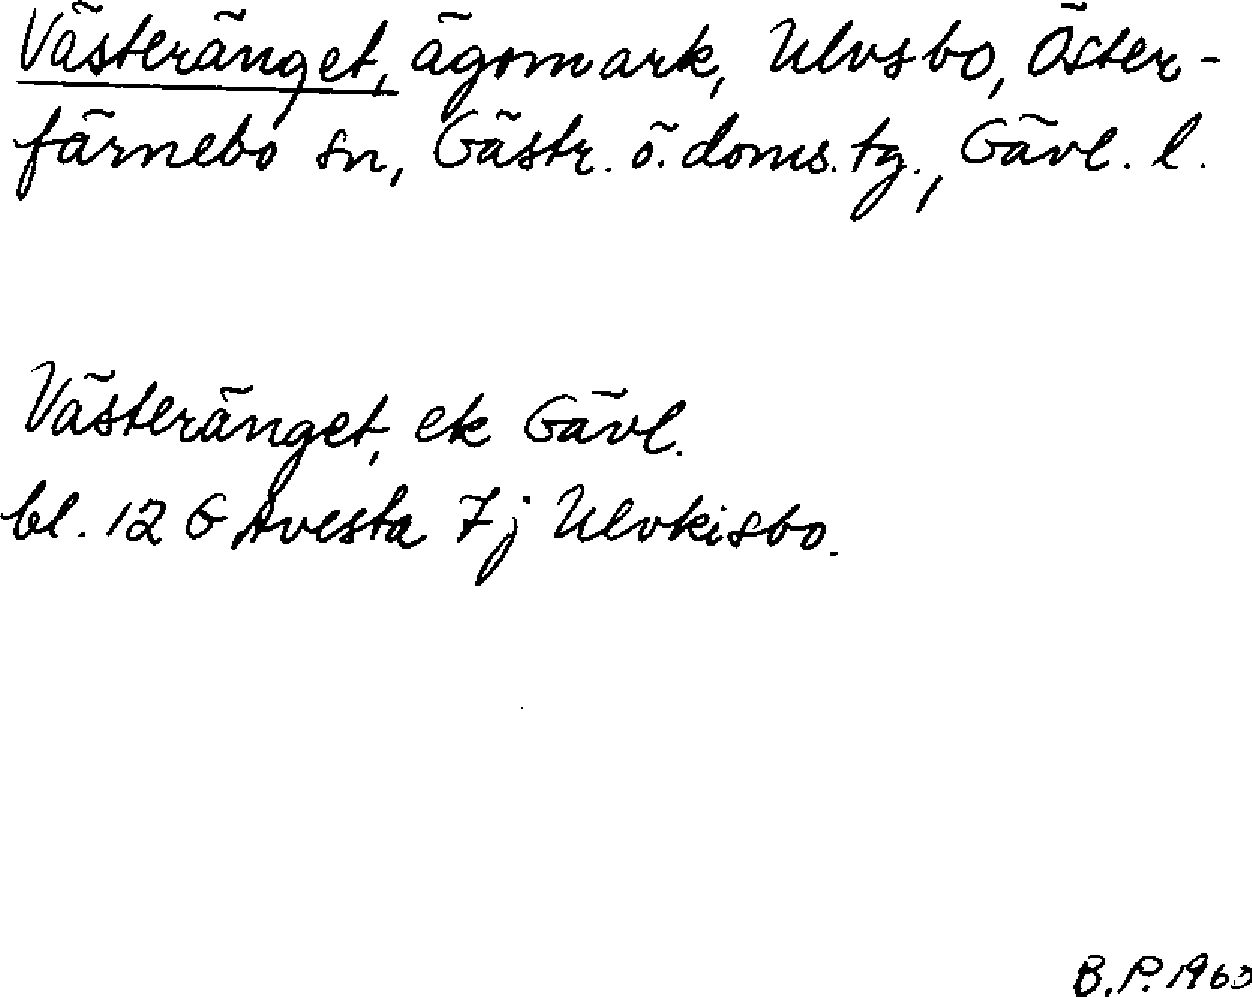 Västeränget, ägomark, Ulvsbo, Öster-
färnebo sn, Gästr. ö. doms. tg., Gävl. l.
Västeränget, ek Gävl.
bl. 12 G Avesta 7j Ulvkisbo.
B.P. 1963